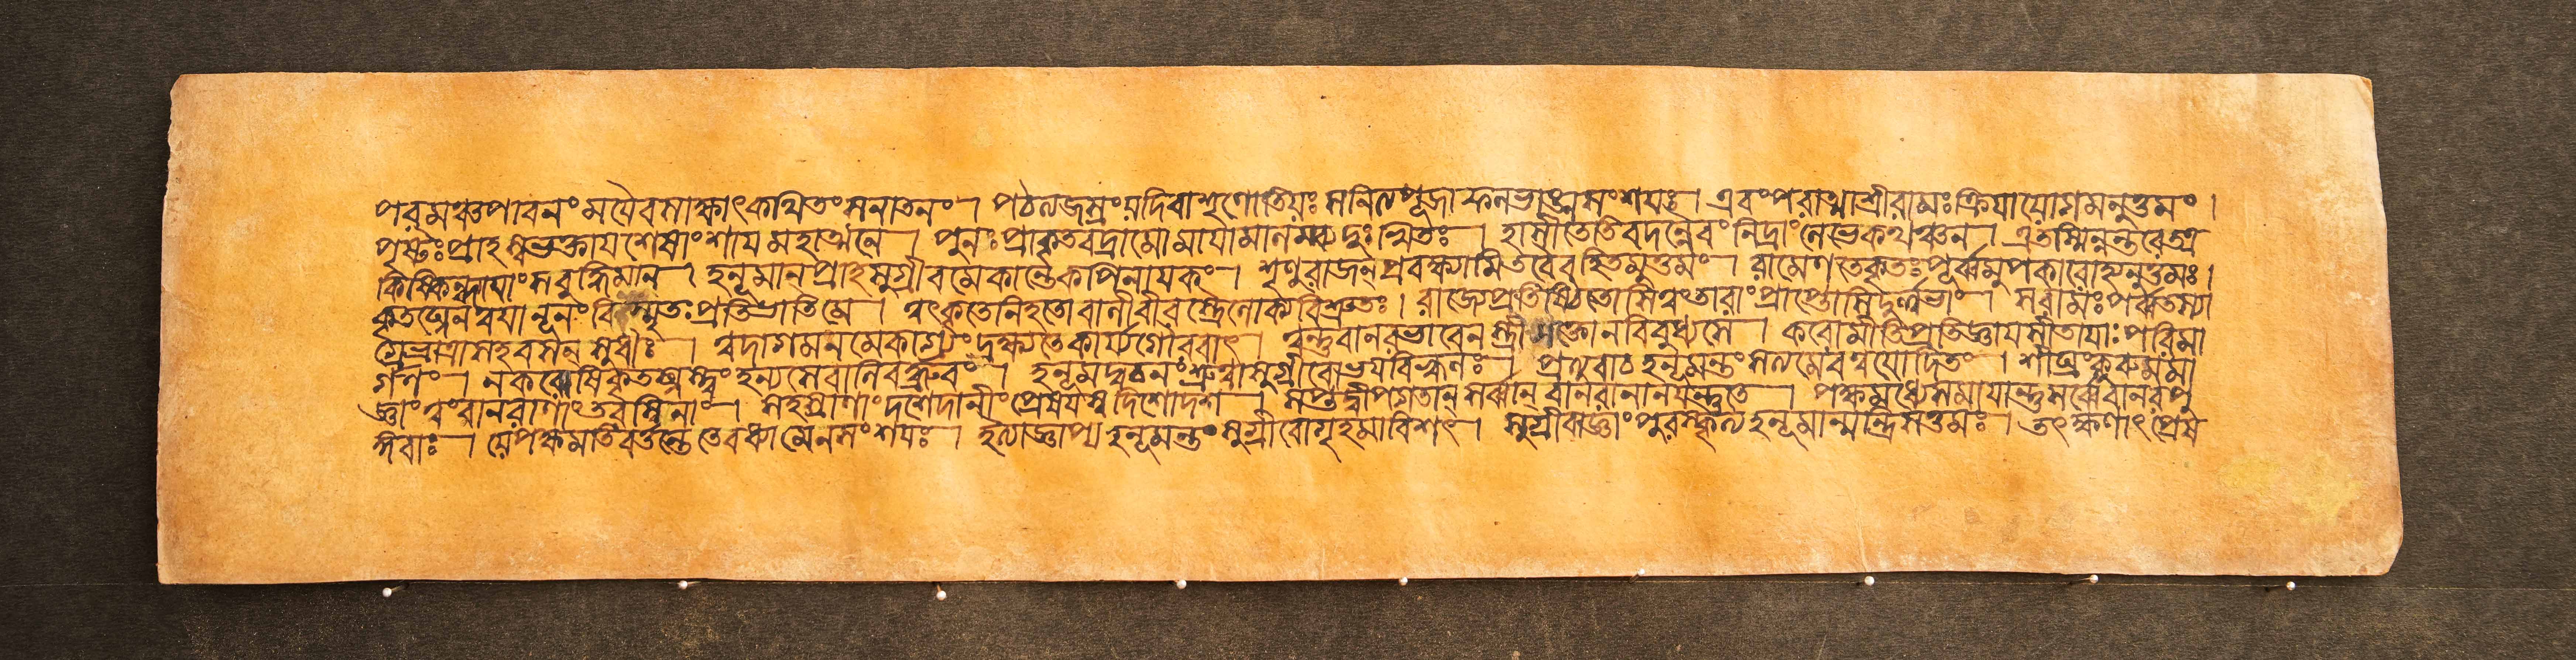 পরমঞ্চপাবনং মযৈবসাক্ষাৎকথিতং সনাতনং । পঠত্যজস্রং যদিবাশৃণোতিযঃ সনিত্যপূজাফলভাঙ্নসংশযঃ । এবংপরাত্মাশ্রীরামঃ ক্রিযাযোগমনুত্তমং ।
পৃষ্টঃ প্রাহ স্বভক্তায শেষাংশায মহাত্মনে । পুনঃ প্রাকৃতবদ্রামো মাযামালম্ব্যদুঃখিতঃ । হাসীতেতিবদন্নেবং নিদ্রাং লেভেকথঞ্চন । এতস্মিন্নন্তরেতত্র
কিষ্কিন্ধাযাং সবুদ্ধিমান । হনূমান্ প্রাহসুগ্রীবমেকান্তেকপিনাযকং । শৃণুরাজন্ প্রবক্ষ্যামিতবৈবহিতমুত্তমং । রামেণতেকৃতঃ পূর্ব্বমুপকারোহ্যনুত্তমঃ ।
কৃতঘ্নেনত্বযানূনং বিস্মৃতঃ প্রতিভাতিমে । ত্বৎকৃতেনিহতোবালীবীরস্ত্রৈলোক্যবিশ্রুতঃ । রাজ্যেপ্রতিষ্ঠিতোসিত্বংতারাং প্রাপ্তোসিদুর্ল্লভাং । সরামঃ পর্ব্বতস্যা
গ্রেভ্রাত্রাসহবসন্ সুধীঃ । ত্বদাগমনমেকাগ্র্যং দ্রক্ষ্যতেকার্য্যগৌরবাৎ । ত্বন্তুবানরভাবেনস্ত্রীসক্তোনবিবুধ্যসে । করোমীতিপ্রতিজ্ঞাযসীতাযাঃ পরিমা
র্গণং । নকরোষিকৃতঘ্নস্ত্বং হন্যসেবালিবদ্ধ্রুবং । হনূমদ্বচনং শ্রুত্বাসুগ্রীবোভযবিহ্বলঃ । প্রত্যুবাচহনূমন্তং সত্যমেবত্বযোদিতং । শীঘ্রংকুরুমমা
জ্ঞাং ত্বং বানরাণাং তরস্বিনাং । সহস্রাণাং দশেদানীং প্রেষযস্বদিশোদশ । সপ্তদ্বীপগতান্ সর্ব্বান্ বানরানানযন্তুতে । পক্ষমধ্যেসমাযান্তুসর্ব্বেবানরপু
ঙ্গবাঃ । যেপক্ষমতিবর্ত্তন্তেতেবধ্যামেনসংশযঃ । ইত্যাজ্ঞাপ্যহনূমন্তং সুগ্রীবোগৃহমাবিশৎ । সুগ্রীবাজ্ঞাং পুরস্কৃত্যহনূমান্মন্ত্রিসত্তমঃ । তৎক্ষণাৎ প্রেষ